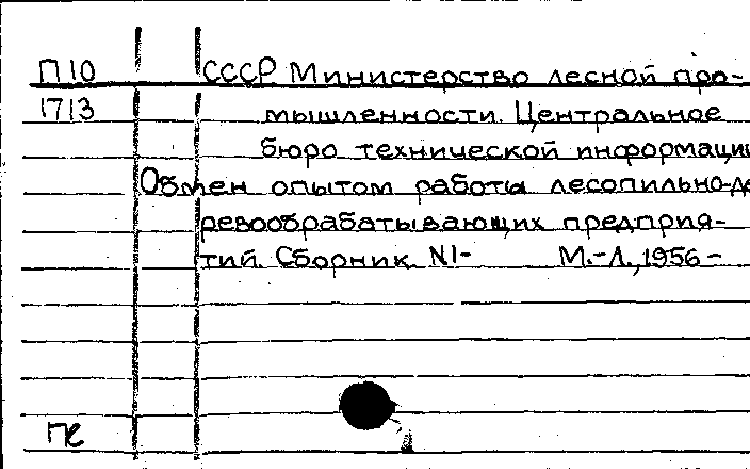 П10 СССР Министерство лесной про-
1713 мышленности. Центральное
бюро технической информации
Обмен опытом работы лесопильно-де
ревообрабатывающих предприя-
тий. Сборник. N1- М.-Л., 1956-
пе